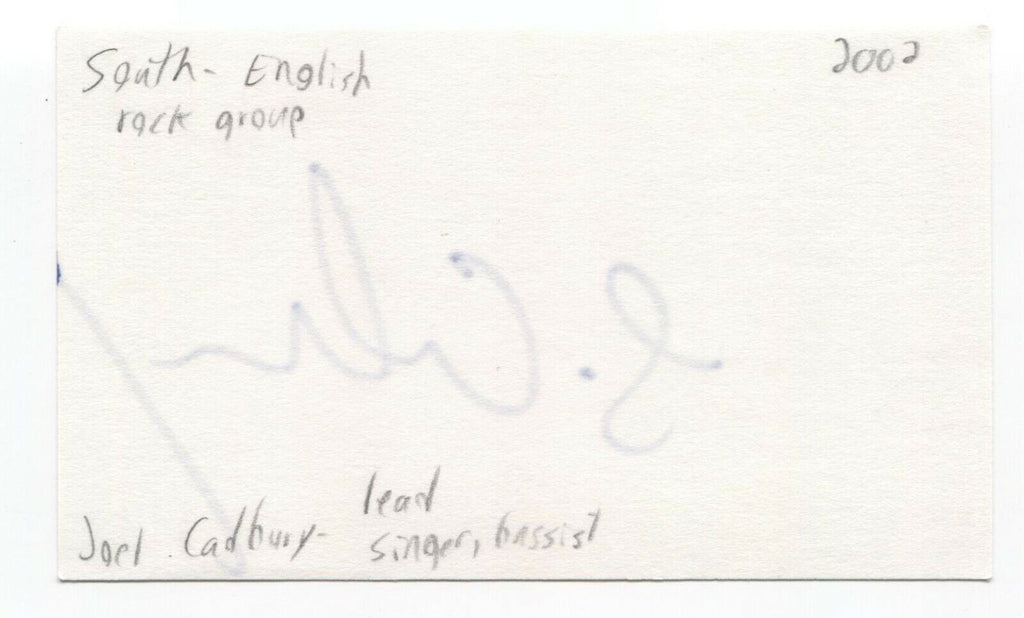 South - English
rock group
2002
lead
Joel Cadbury - singer, bassist